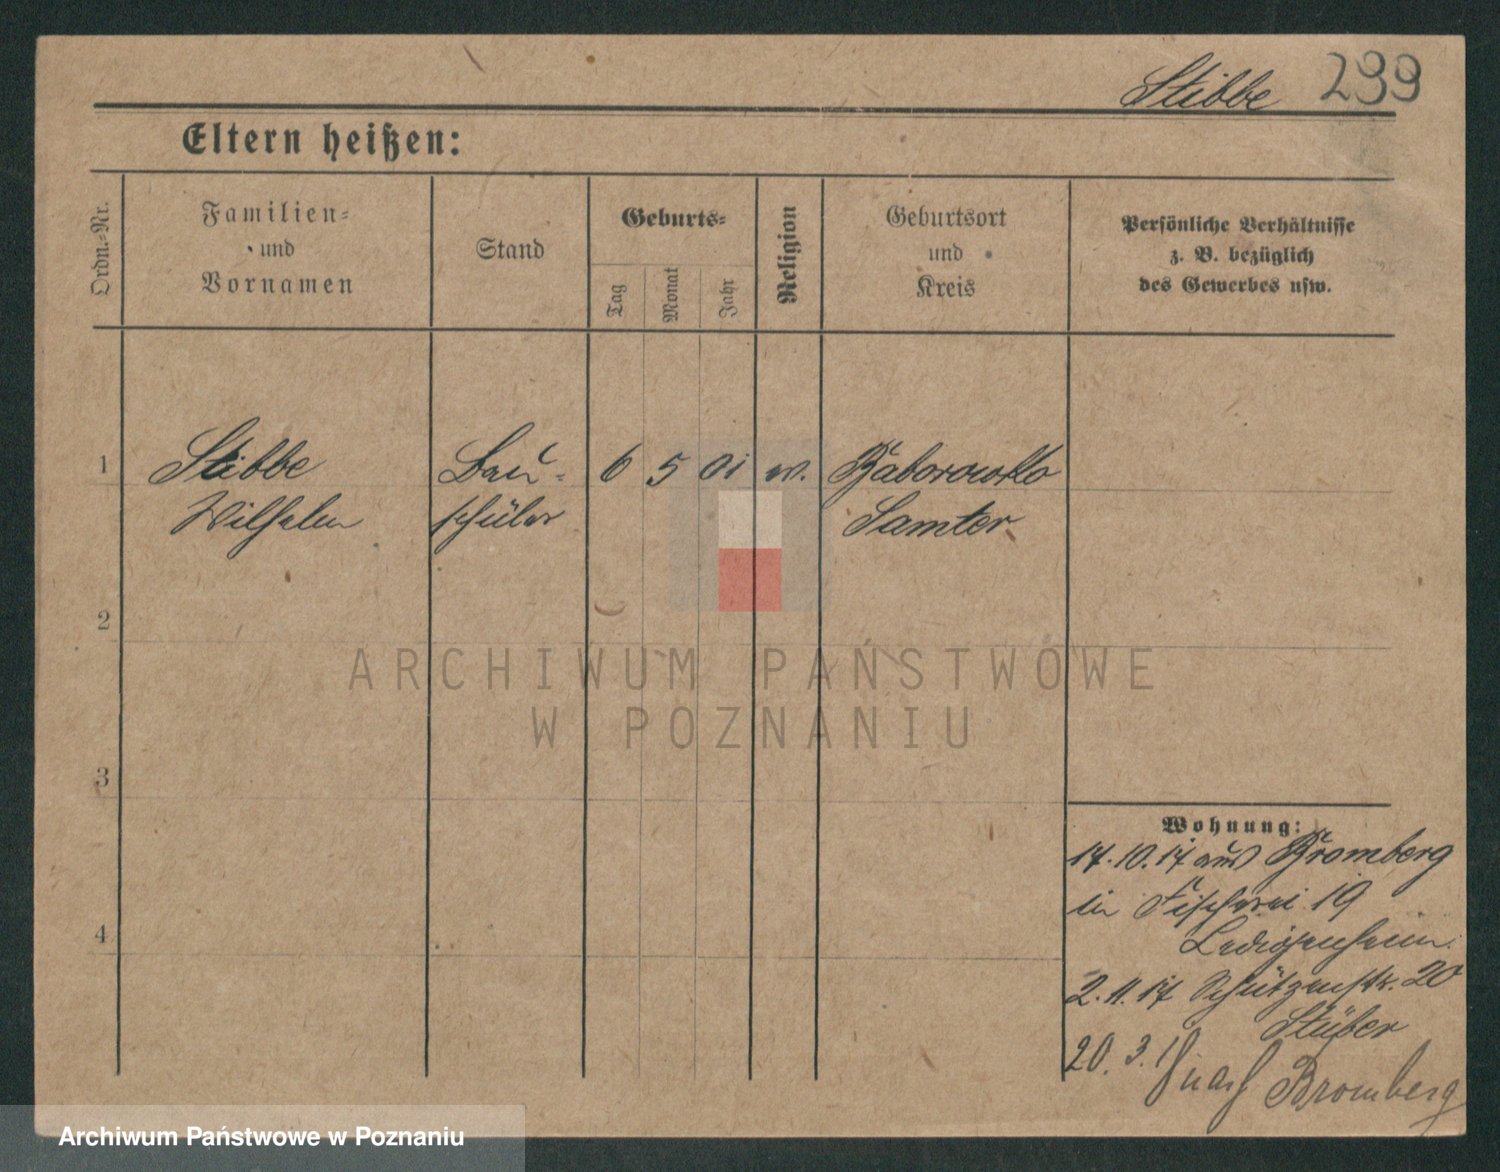 Stibbe 299
Eltern heißen:
Ordn.-Nr.
Familien-
und
Vornamen
Stand
Geburts-
Tag
Monat
Jahr
Religion
Geburtsort
und
Kreis
Persönliche Verhältnisse
z. B. bezüglich
des Gewerbes usw.
1 Stibbe Bau- 6 5 01 ev. Baborowko
Wilhelm schüler Samter
2
3
4
Wohnung:
17.10.17 aus Bromberg
in Fischerei 19
Ledigenheim.
2.11.17 Schützenstr. 20
Stüber
20.3.18 nach Bromberg
ARCHIWUM PAŃSTWOWE
W POZNANIU
Archiwum Państwowe w Poznaniu